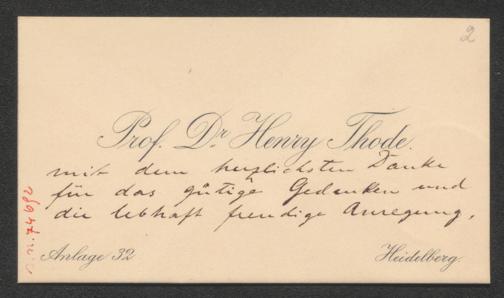 2
Prof. Dr Henry Thode.
mit dem herzlichsten Danke
für das gütige Gedenken und
die lebhaft freudige Anregung.
Anlage 32
Heidelberg.
n.n.74692